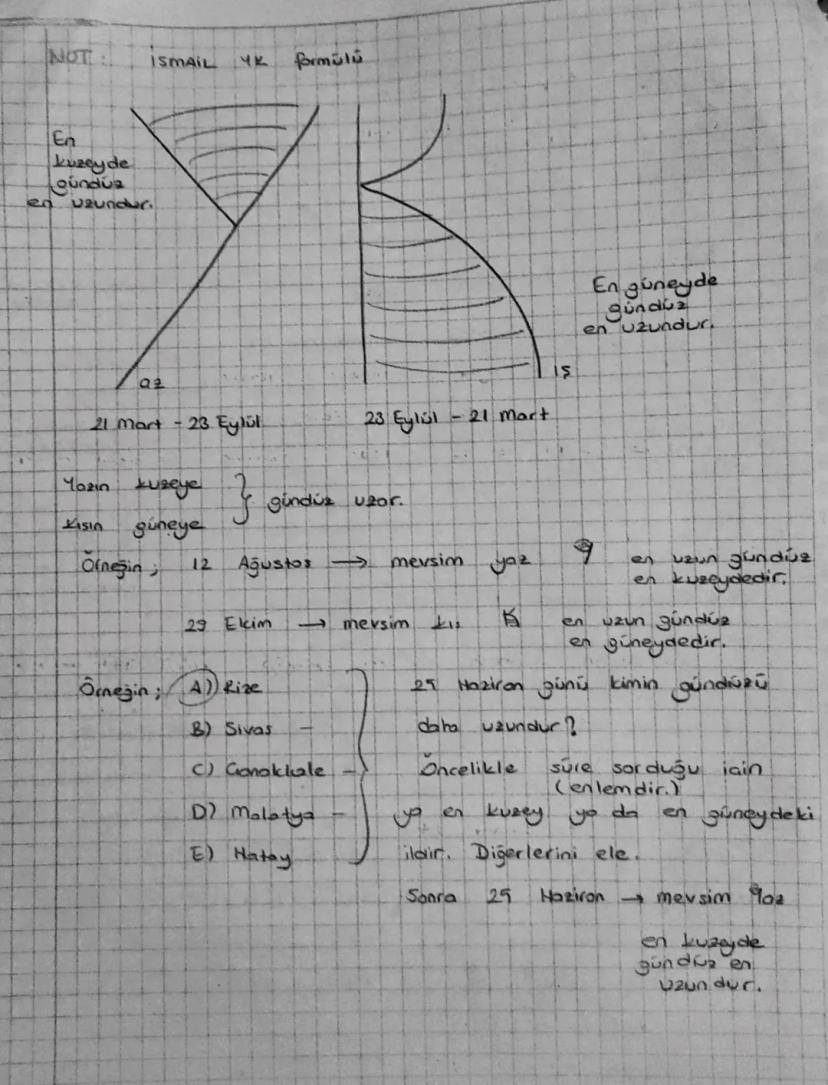 NOT: İSMAİL YK formülü
En
kuzeyde
gündüz
en uzundur.
En güneyde
gündüz
en uzundur.
az
ış
21 Mart - 23 Eylül
23 Eylül - 21 Mart
Yazın kuzeye
Kışın güneye
gündüz uzar.
Örneğin; 12 Ağustos → mevsim yaz
en uzun gündüz
en kuzeydedir.
29 Ekim → mevsim kış
en uzun gündüz
en güneydedir.
Örneğin; A) Rize
B) Sivas -
C) Çanakkale -
D) Malatya -
E) Hatay
25 Haziran günü kimin gündüzü
daha uzundur?
Öncelikle süre sorduğu için
(enlemdir.)
ya en kuzey ya da en güneydeki
ildir. Diğerlerini ele.
Sonra 25 Haziran → mevsim yaz
en kuzeyde
gündüz en
uzundur.